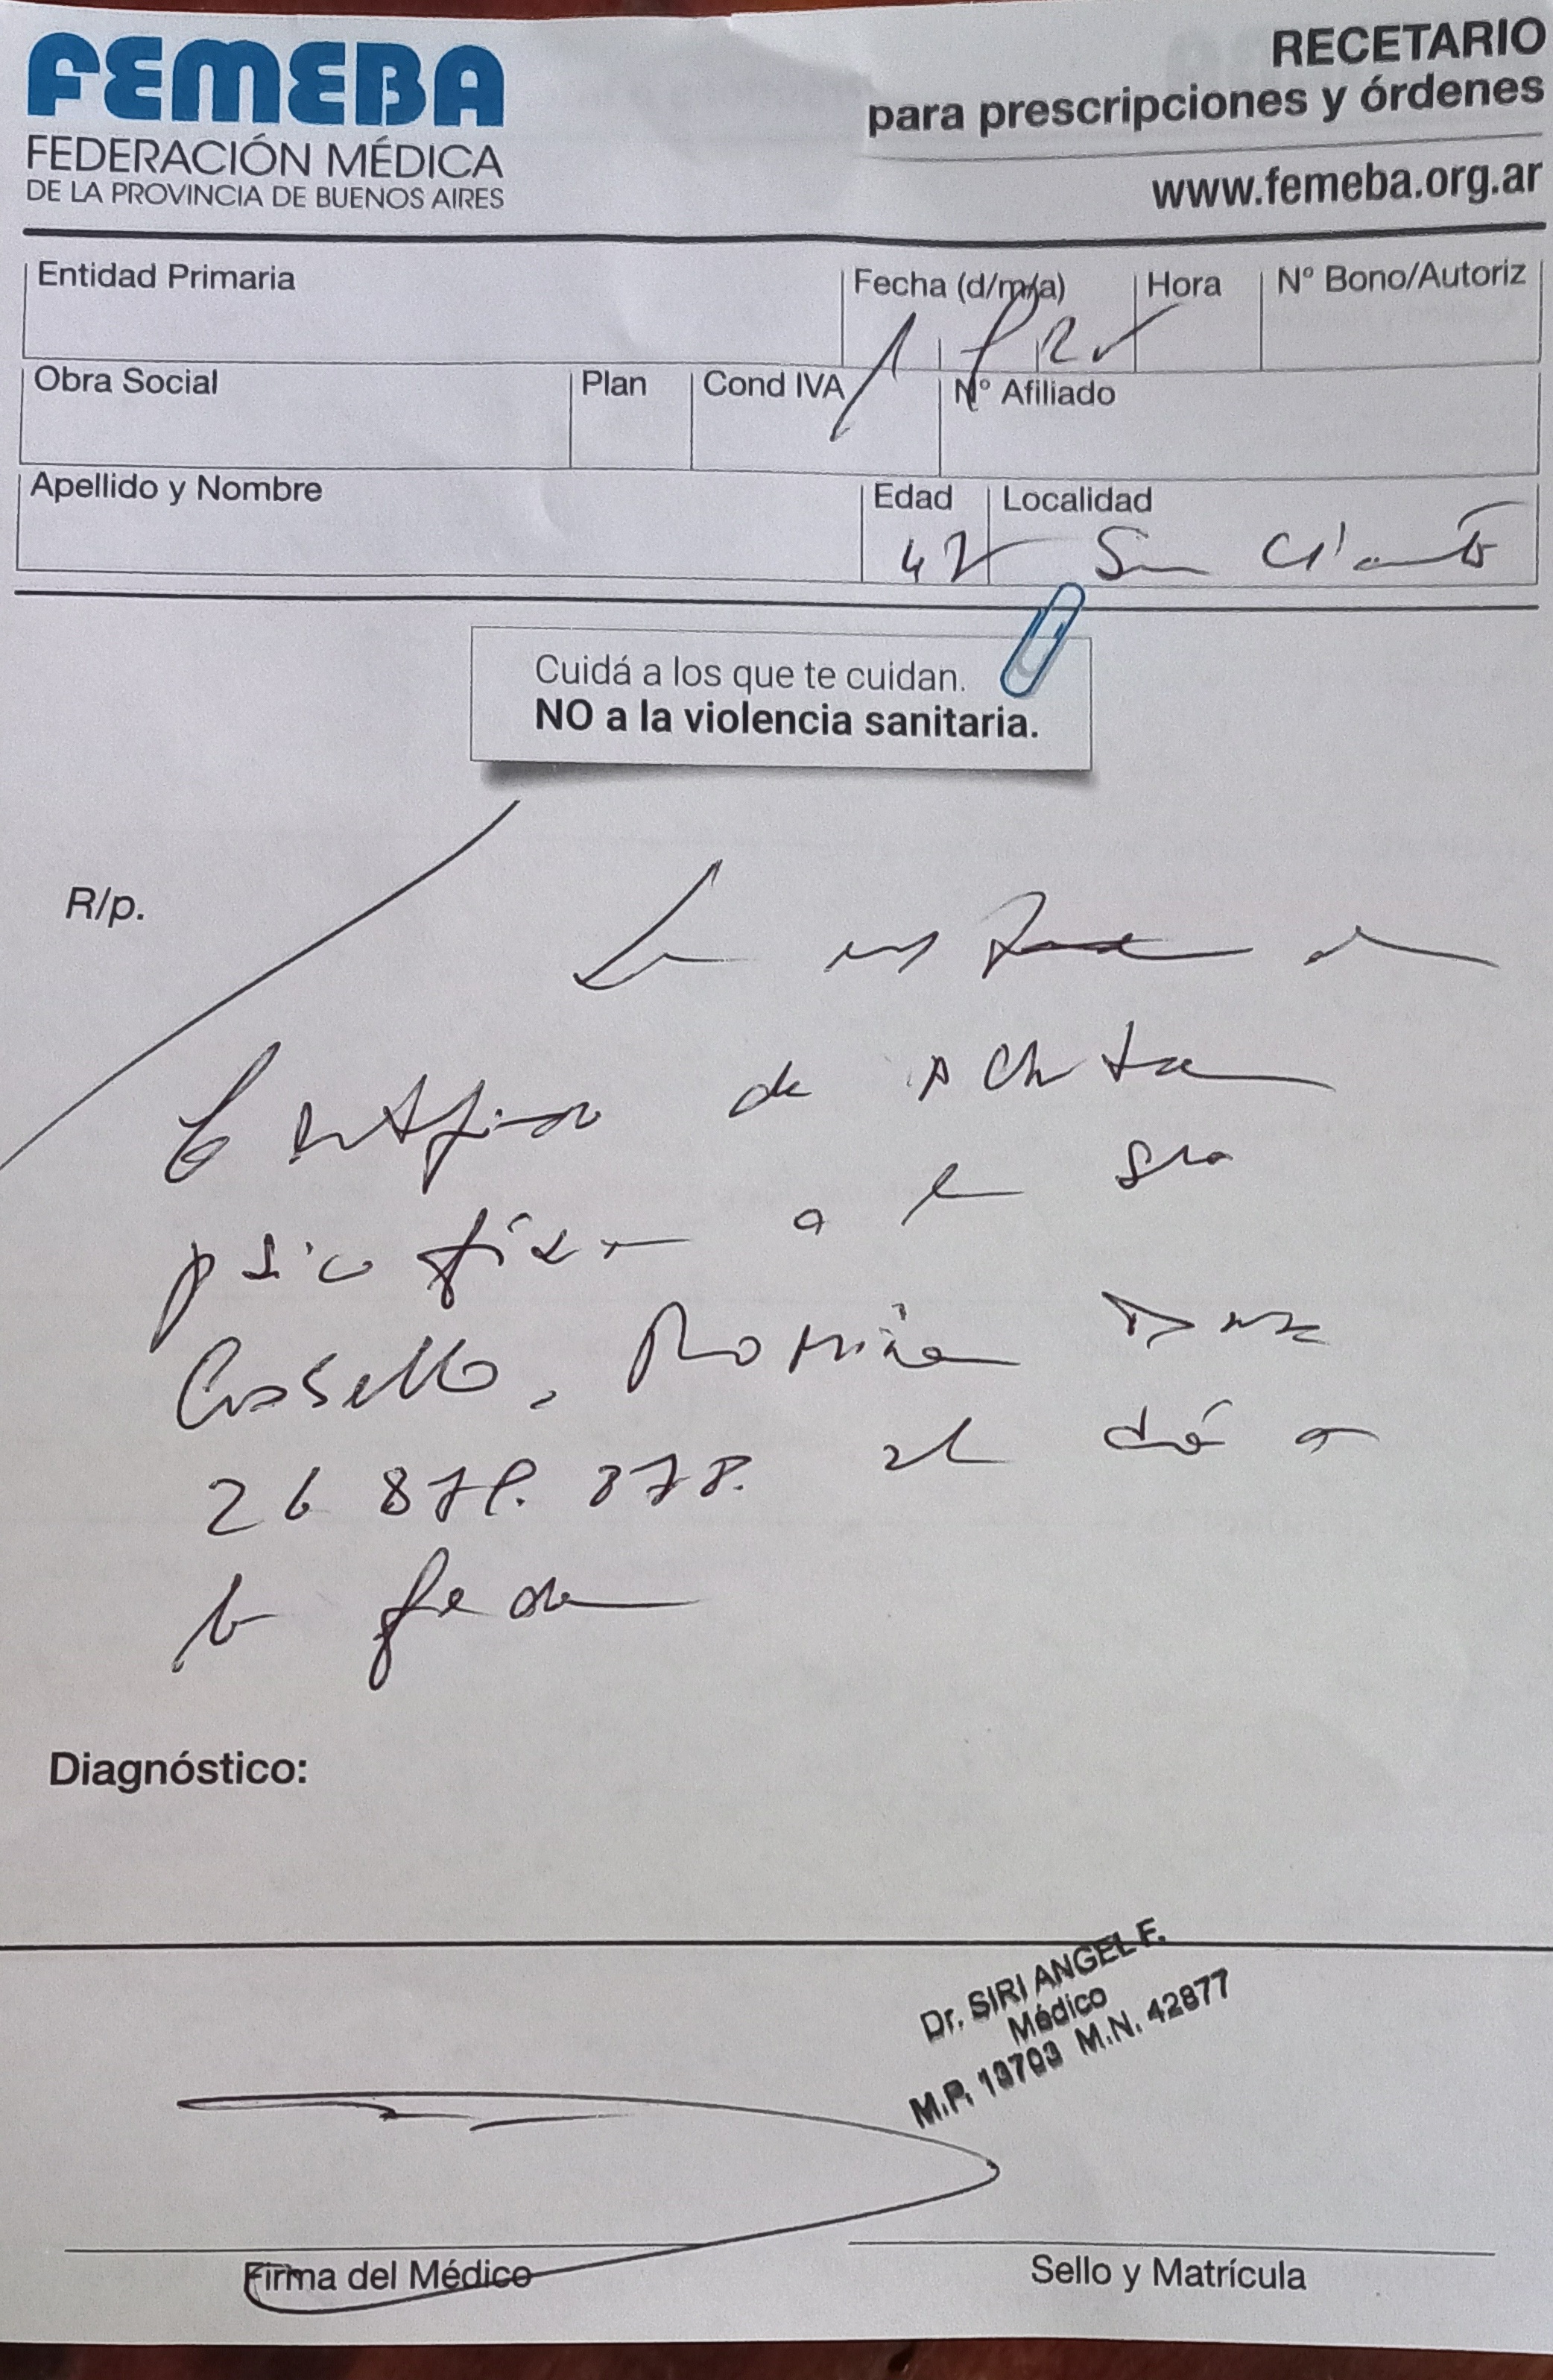 FEMEBA
FEDERACIÓN MÉDICA
DE LA PROVINCIA DE BUENOS AIRES
RECETARIO
para prescripciones y órdenes
www.femeba.org.ar
Entidad Primaria
Fecha (d/m/a)
Hora
Nº Bono/Autoriz
Obra Social
Plan
Cond IVA
Nº Afiliado
Apellido y Nombre
Edad
Localidad
42
Cuidá a los que te cuidan.
NO a la violencia sanitaria.
R/p.
de
psicofísica a la Sra
Romina
26 878. 878. al día
la fecha
Diagnóstico:
Dr. SIRI ANGEL F.
Médico
M.P. 13703 M.N. 42877
Firma del Médico
Sello y Matrícula